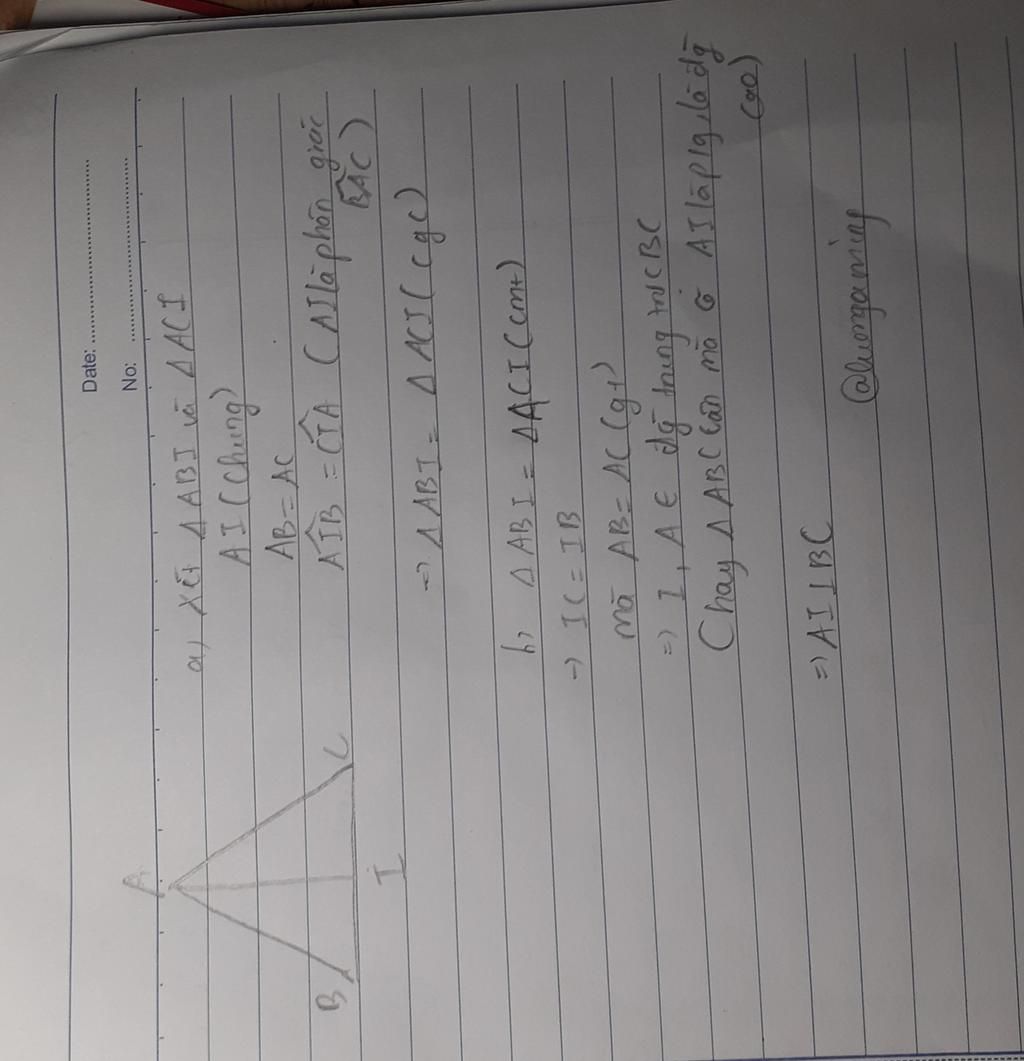 Date:
No:
a, Xét ΔABI và ΔACI
AI (chung)
AB = AC
AIB = CIA (AI là phân giác
BAC)
=) ΔABI = ΔACI (cgc)
b, ΔABI = ΔACI (cmt)
=) IC = IB
mà AB = AC (gt)
=) I, A ∈ đg trung trực BC
(hay ΔABC cân mà có AI là p/g, là đg
cao)
=) AI ⊥ BC
@luongaming
A
B
C
I